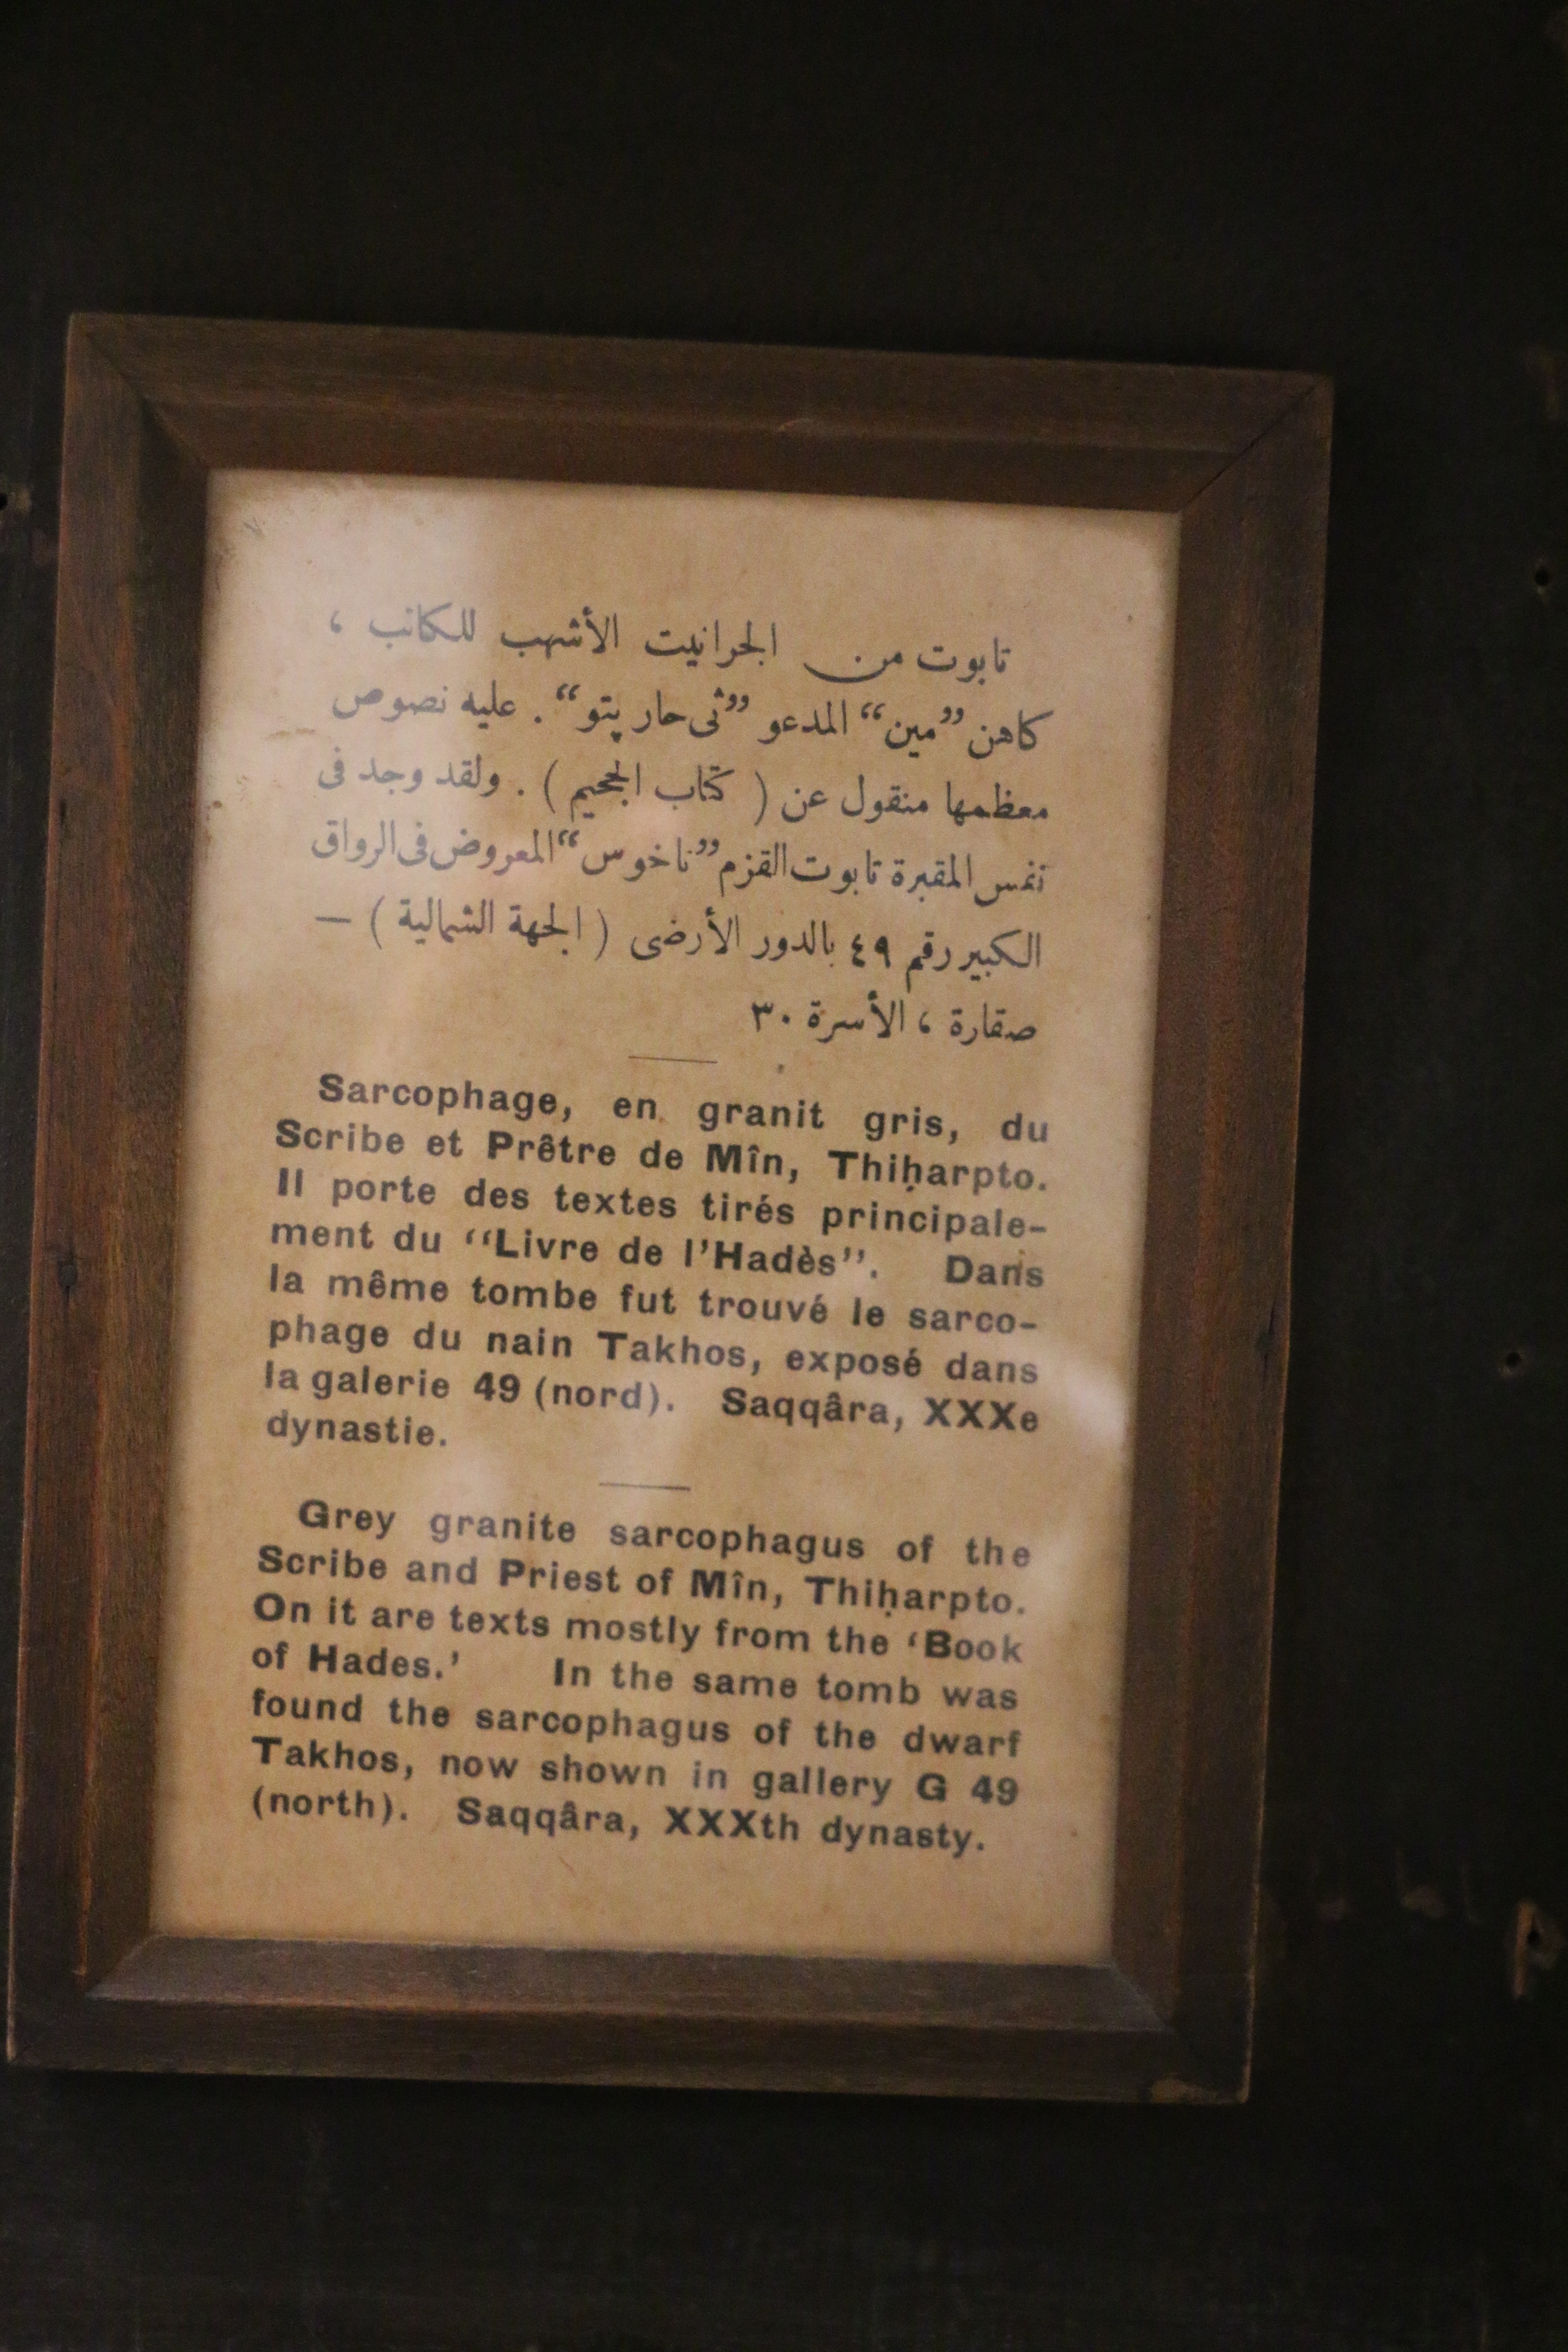 تابوت من الجرانيت الأشهب للكاتب ،
كاهن ”مين“ المدعو ”ثى حار پتو“ . عليه نصوص
معظمها منقول عن ( كتاب الجحيم ) . ولقد وجد فى
نفس المقبرة تابوت القزم ”تاخوس“ المعروض فى الرواق
الكبير رقم ٤٩ بالدور الأرضى ( الجهة الشمالية ) —
صقارة ، الأسرة ٣٠
Sarcophage, en granit gris, du
Scribe et Prêtre de Mîn, Thiḥarpto.
Il porte des textes tirés principale-
ment du “Livre de l’Hadès”. Dans
la même tombe fut trouvé le sarco-
phage du nain Takhos, exposé dans
la galerie 49 (nord). Saqqâra, XXXe
dynastie.
Grey granite sarcophagus of the
Scribe and Priest of Mîn, Thiḥarpto.
On it are texts mostly from the ‘Book
of Hades.’ In the same tomb was
found the sarcophagus of the dwarf
Takhos, now shown in gallery G 49
(north). Saqqâra, XXXth dynasty.